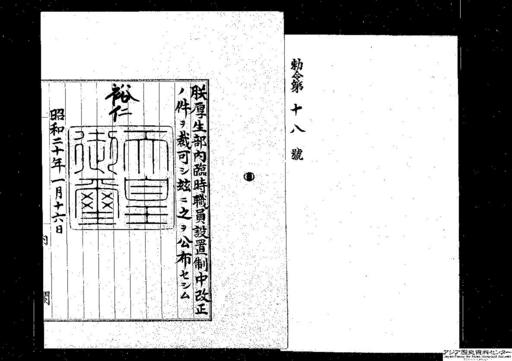 勅令第十八號
朕厚生部內臨時職員設置制中改正
ノ件ヲ裁可シ玆ニ之ヲ公布セシム
裕仁
天皇御璽
昭和二十年一月十六日
內閣
アジア歴史資料センター